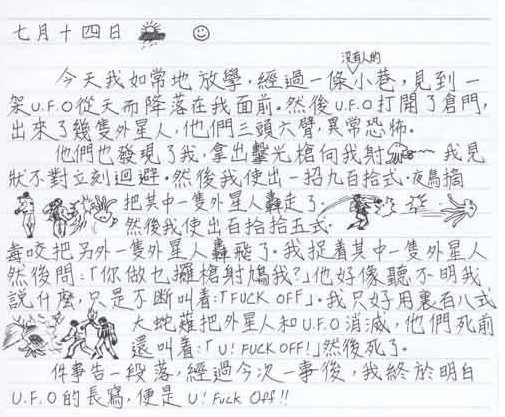 七月十四日
今天我如常地放學，經過一條沒有人的小巷，見到一
架U.F.O從天而降落在我面前。然後U.F.O打開了倉門，
出來了幾隻外星人，他們三頭六臂，異常恐怖。
他們也發現了我，拿出擊光槍向我射 我見
狀不對立刻迴避。然後我使出一招九百拾式·夜鳥摘
把其中一隻外星人轟走了。
然後我使出百拾拾五式·
毒咬把另外一隻外星人轟飛了。我捉着其中一隻外星人
然後問：「你做乜攞槍射鳩我？」他好像聽不明我
說什麼，只是不斷叫着：「FUCK OFF」。我只好用裏百八式
大地薙把外星人和U.F.O消滅，他們死前
還叫着：「U! FUCK OFF!」然後死了。
件事告一段落，經過今次一事後，我終於明白
U.F.O的長寫，便是U! Fuck Off!!